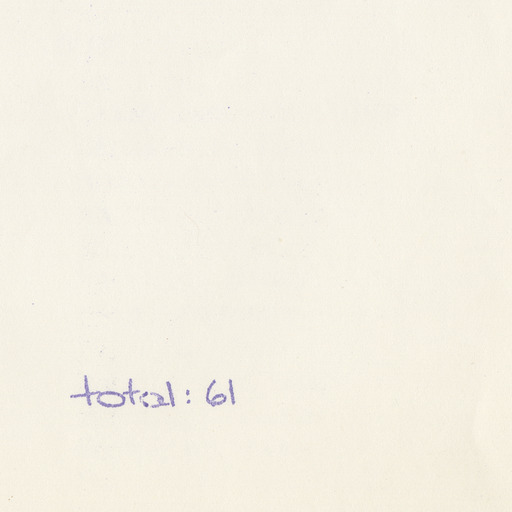 total: 61